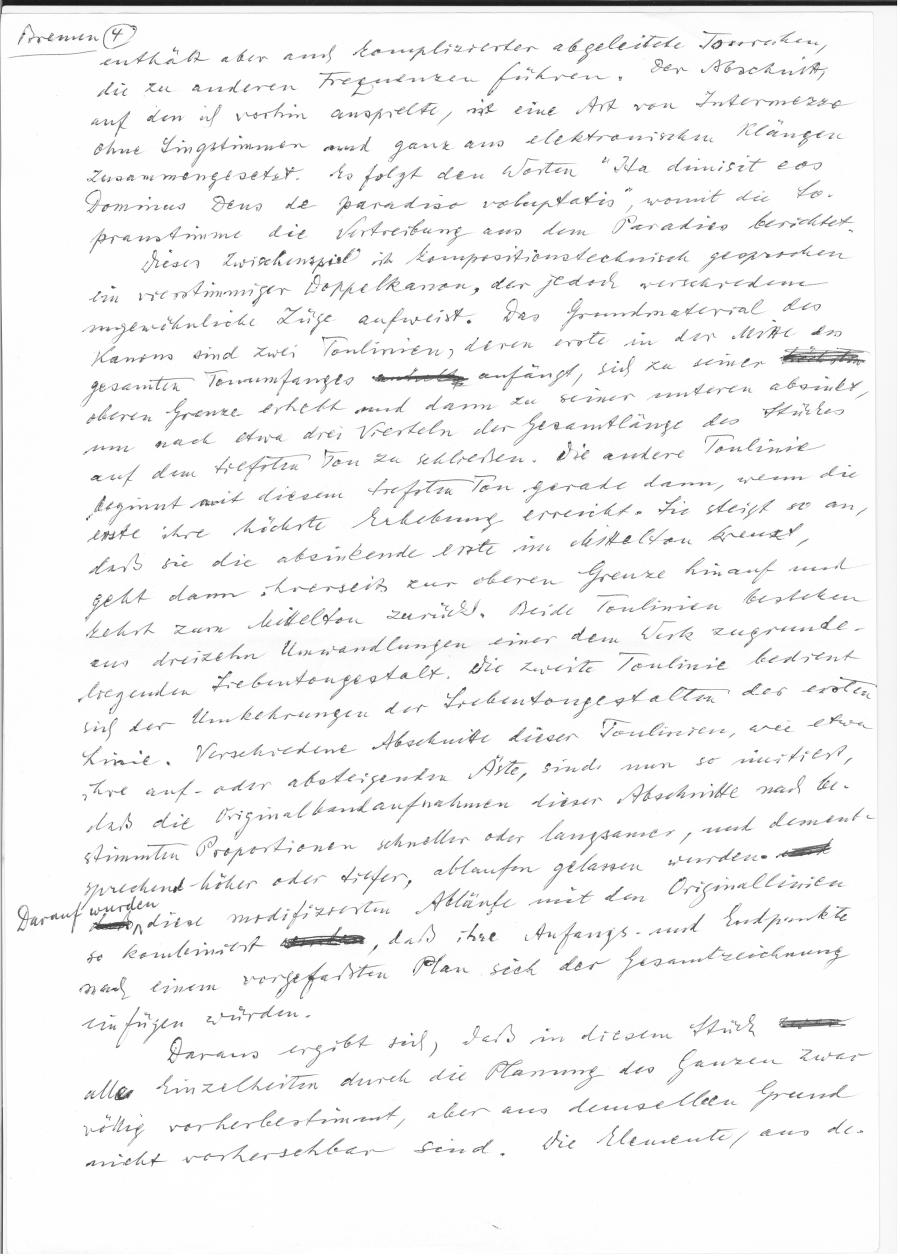 Bremen 4
enthält aber auch komplizierter abgeleitete Tonreihen,
die zu anderen Frequenzen führen. Der Abschnitt,
auf den ich vorhin anspielte, ist eine Art von Intermezzo
ohne Singstimmen und ganz aus elektronischen Klängen
zusammengesetzt. Es folgt den Worten "Ita dimisit eos
Dominus Deus de paradiso voluptatis", womit die So-
pranstimme die Vertreibung aus dem Paradies berichtet.
Dieses Zwischenspiel ist kompositionstechnisch gesprochen
ein vierstimmiger Doppelkanon, der jedoch verschiedene
ungewöhnliche Züge aufweist. Das Grundmaterial des
Kanons sind zwei Tonlinien, deren erste in der Mitte des
gesamten Tonumfanges anfängt, sich zu seiner
oberen Grenze erhebt und dann zu seiner unteren absinkt,
um nach etwa drei Vierteln der Gesamtlänge des Stückes
auf dem tiefsten Ton zu schließen. Die andere Tonlinie
beginnt mit diesem tiefsten Ton gerade dann, wenn die
erste ihre höchste Erhebung erreicht. Sie steigt so an,
daß sie die absinkende erste im Mittelton kreuzt,
geht dann ihrerseits zur oberen Grenze hinauf und
kehrt zum Mittelton zurück. Beide Tonlinien bestehen
aus dreizehn Umwandlungen einer dem Werk zugrunde-
liegenden Siebentongestalt. Die zweite Tonlinie bedient
sich der Umkehrungen der Siebentongestalten der ersten
Linie. Verschiedene Abschnitte dieser Tonlinien, wie etwa
ihre auf- oder absteigenden Äste, sind nun so imitiert,
daß die Originalbandaufnahmen dieser Abschnitte nach be-
stimmten Proportionen schneller oder langsamer, und dement-
sprechend höher oder tiefer, ablaufen gelassen wurden.
Darauf wurden diese modifizierten Abläufe mit den Originallinien
so kombiniert, daß ihre Anfangs- und Endpunkte
nach einem vorgefaßten Plan sich der Gesamtzeichnung
einfügen würden.
Daraus ergibt sich, daß in diesem Stück
alle Einzelheiten durch die Planung des Ganzen zwar
völlig vorherbestimmt, aber aus demselben Grund
nicht vorhersehbar sind. Die Elemente, aus de-